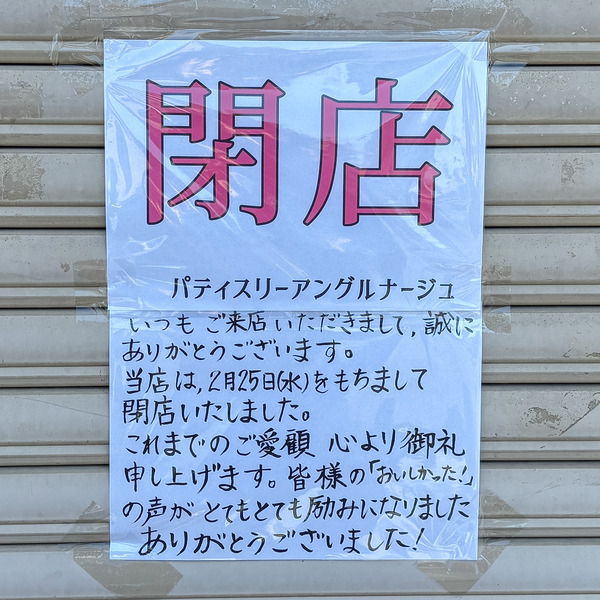 閉店
パティスリーアングルナージュ
いつもご来店いただきまして,誠に
ありがとうございます。
当店は,2月25日(水)をもちまして
閉店いたしました。
これまでのご愛顧 心より御礼
申し上げます。皆様の「おいしかった!」
の声が とてもとても励みになりました
ありがとうございました!